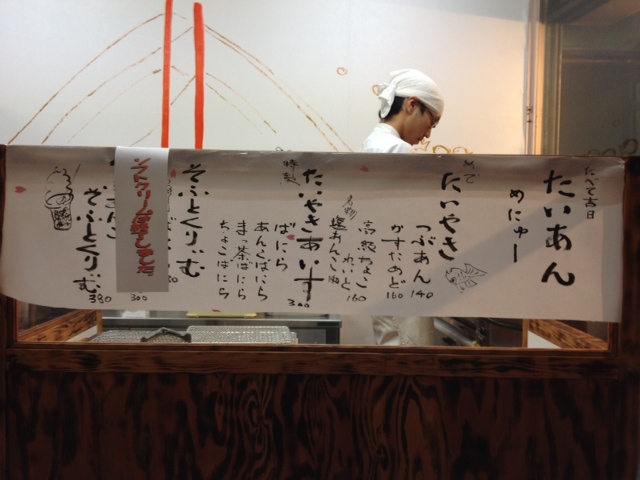 たべて吉日
たいあん
めにゅー
たいやき
つぶあん 140
かすたあど 160
高級ちょこ
れいと 160
名物
特製
たいやきあいす 300
ばにら
あんこばにら
まっ茶ばにら
ちょこばにら
そふとくりぃむ
300
ソフトクリーム始めました
そふとくりぃむ
380